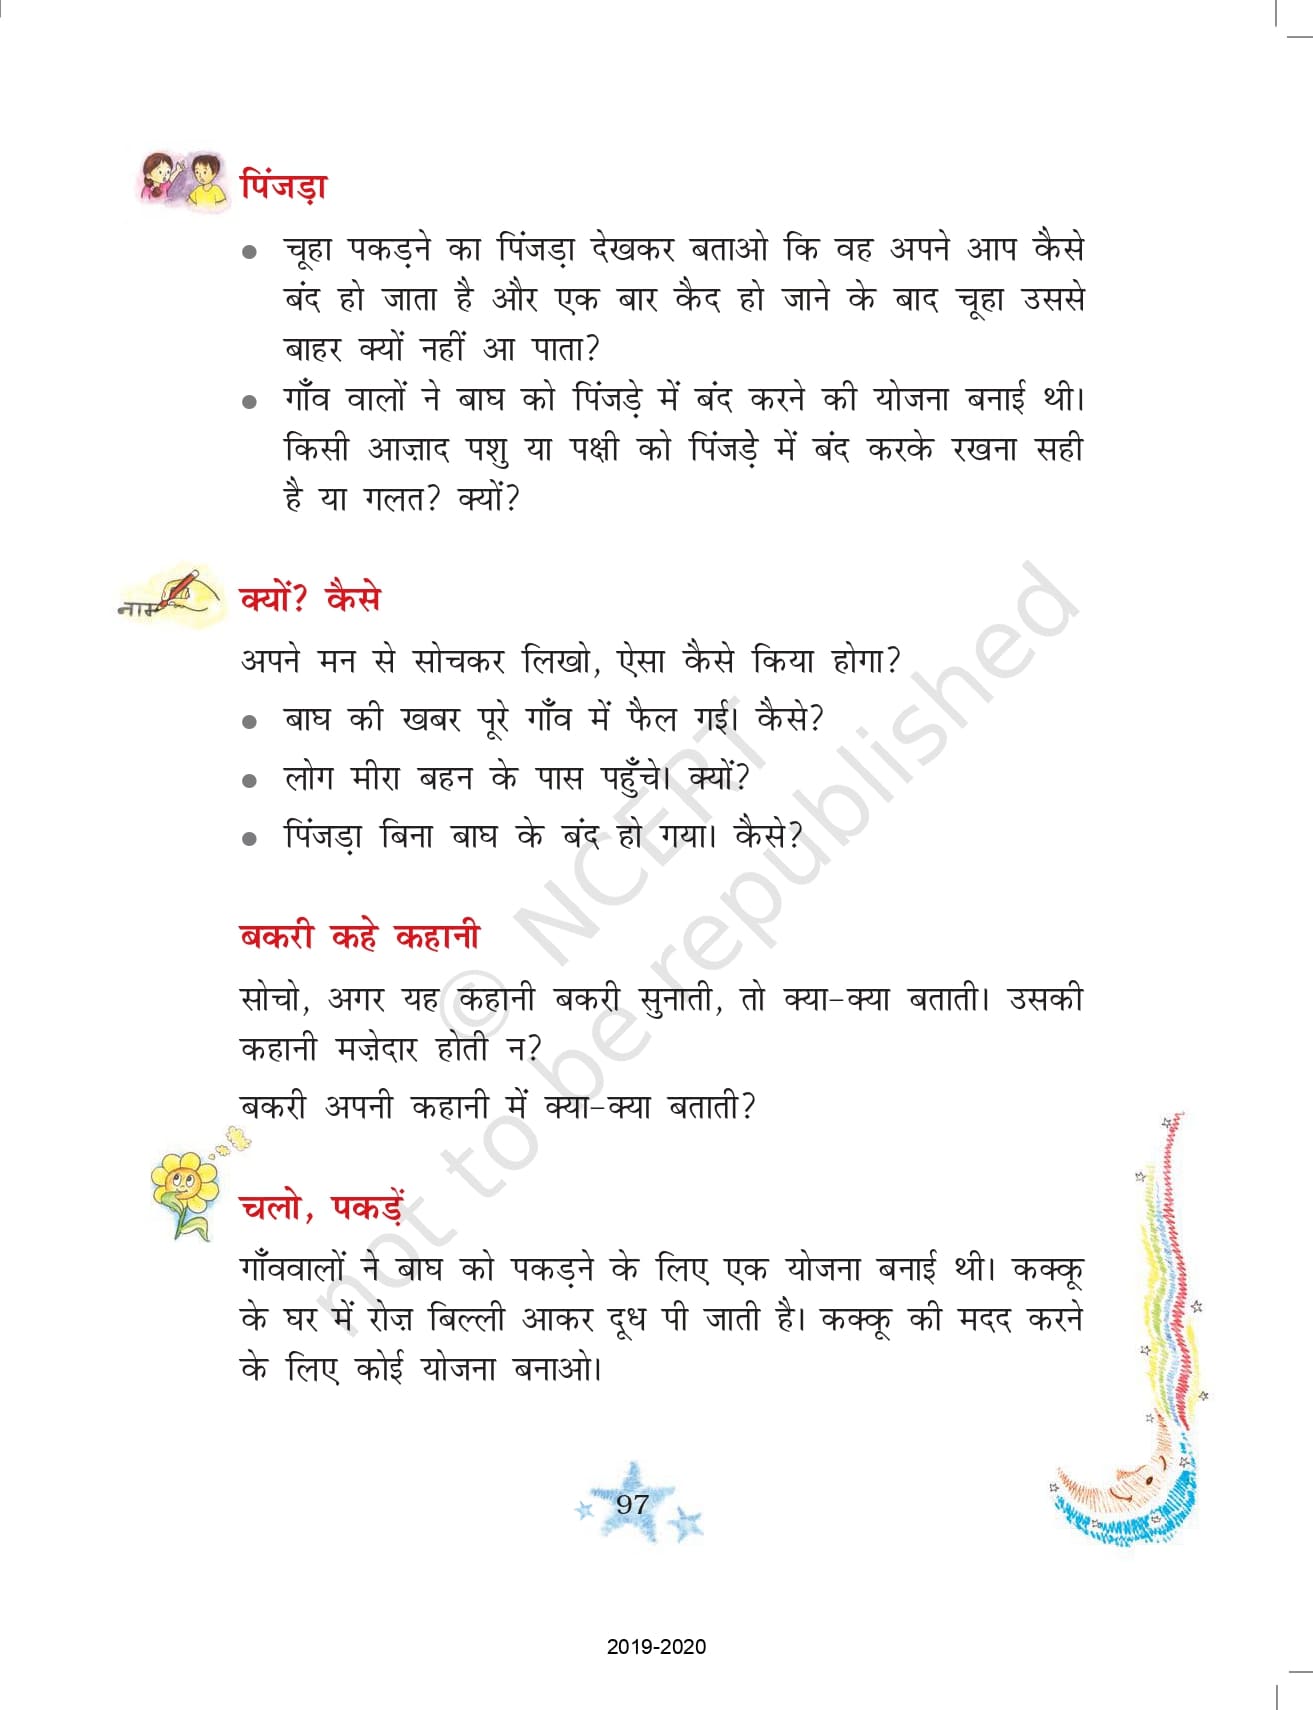 पिंजड़ा
• चूहा पकड़ने का पिंजड़ा देखकर बताओ कि वह अपने आप कैसे
बंद हो जाता है और एक बार कैद हो जाने के बाद चूहा उससे
बाहर क्यों नहीं आ पाता?
• गाँव वालों ने बाघ को पिंजड़े में बंद करने की योजना बनाई थी।
किसी आज़ाद पशु या पक्षी को पिंजड़े में बंद करके रखना सही
है या गलत? क्यों?
नाम
क्यों? कैसे
अपने मन से सोचकर लिखो, ऐसा कैसे किया होगा?
• बाघ की खबर पूरे गाँव में फैल गई। कैसे?
• लोग मीरा बहन के पास पहुँचे। क्यों?
• पिंजड़ा बिना बाघ के बंद हो गया। कैसे?
बकरी कहे कहानी
सोचो, अगर यह कहानी बकरी सुनाती, तो क्या-क्या बताती। उसकी
कहानी मज़ेदार होती न?
बकरी अपनी कहानी में क्या-क्या बताती?
चलो, पकड़ें
गाँववालों ने बाघ को पकड़ने के लिए एक योजना बनाई थी। कक्कू
के घर में रोज़ बिल्ली आकर दूध पी जाती है। कक्कू की मदद करने
के लिए कोई योजना बनाओ।
97
2019-2020
© NCERT
not to be republished